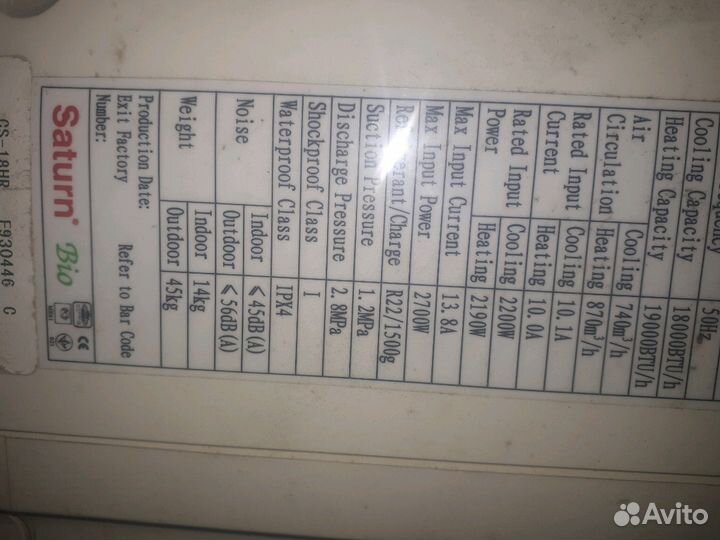 50Hz
Cooling Capacity 18000BTU/h
Heating Capacity 19000BTU/h
Air Circulation Cooling 740m³/h
Heating 870m³/h
Rated Input Current Cooling 10.1A
Heating 10.0A
Rated Input Power Cooling 2200W
Heating 2190W
Max Input Current 13.8A
Max Input Power 2700W
Refrigerant/Charge R22/1500g
Suction Pressure 1.2MPa
Discharge Pressure 2.8MPa
Shockproof Class I
Waterproof Class IPX4
Noise Indoor ≤45dB(A)
Outdoor ≤56dB(A)
Weight Indoor 14kg
Outdoor 45kg
Production Date:
Exit Factory Number: Refer to Bar Code
Saturn Bio CE
CS-18HR E930446 C
Avito